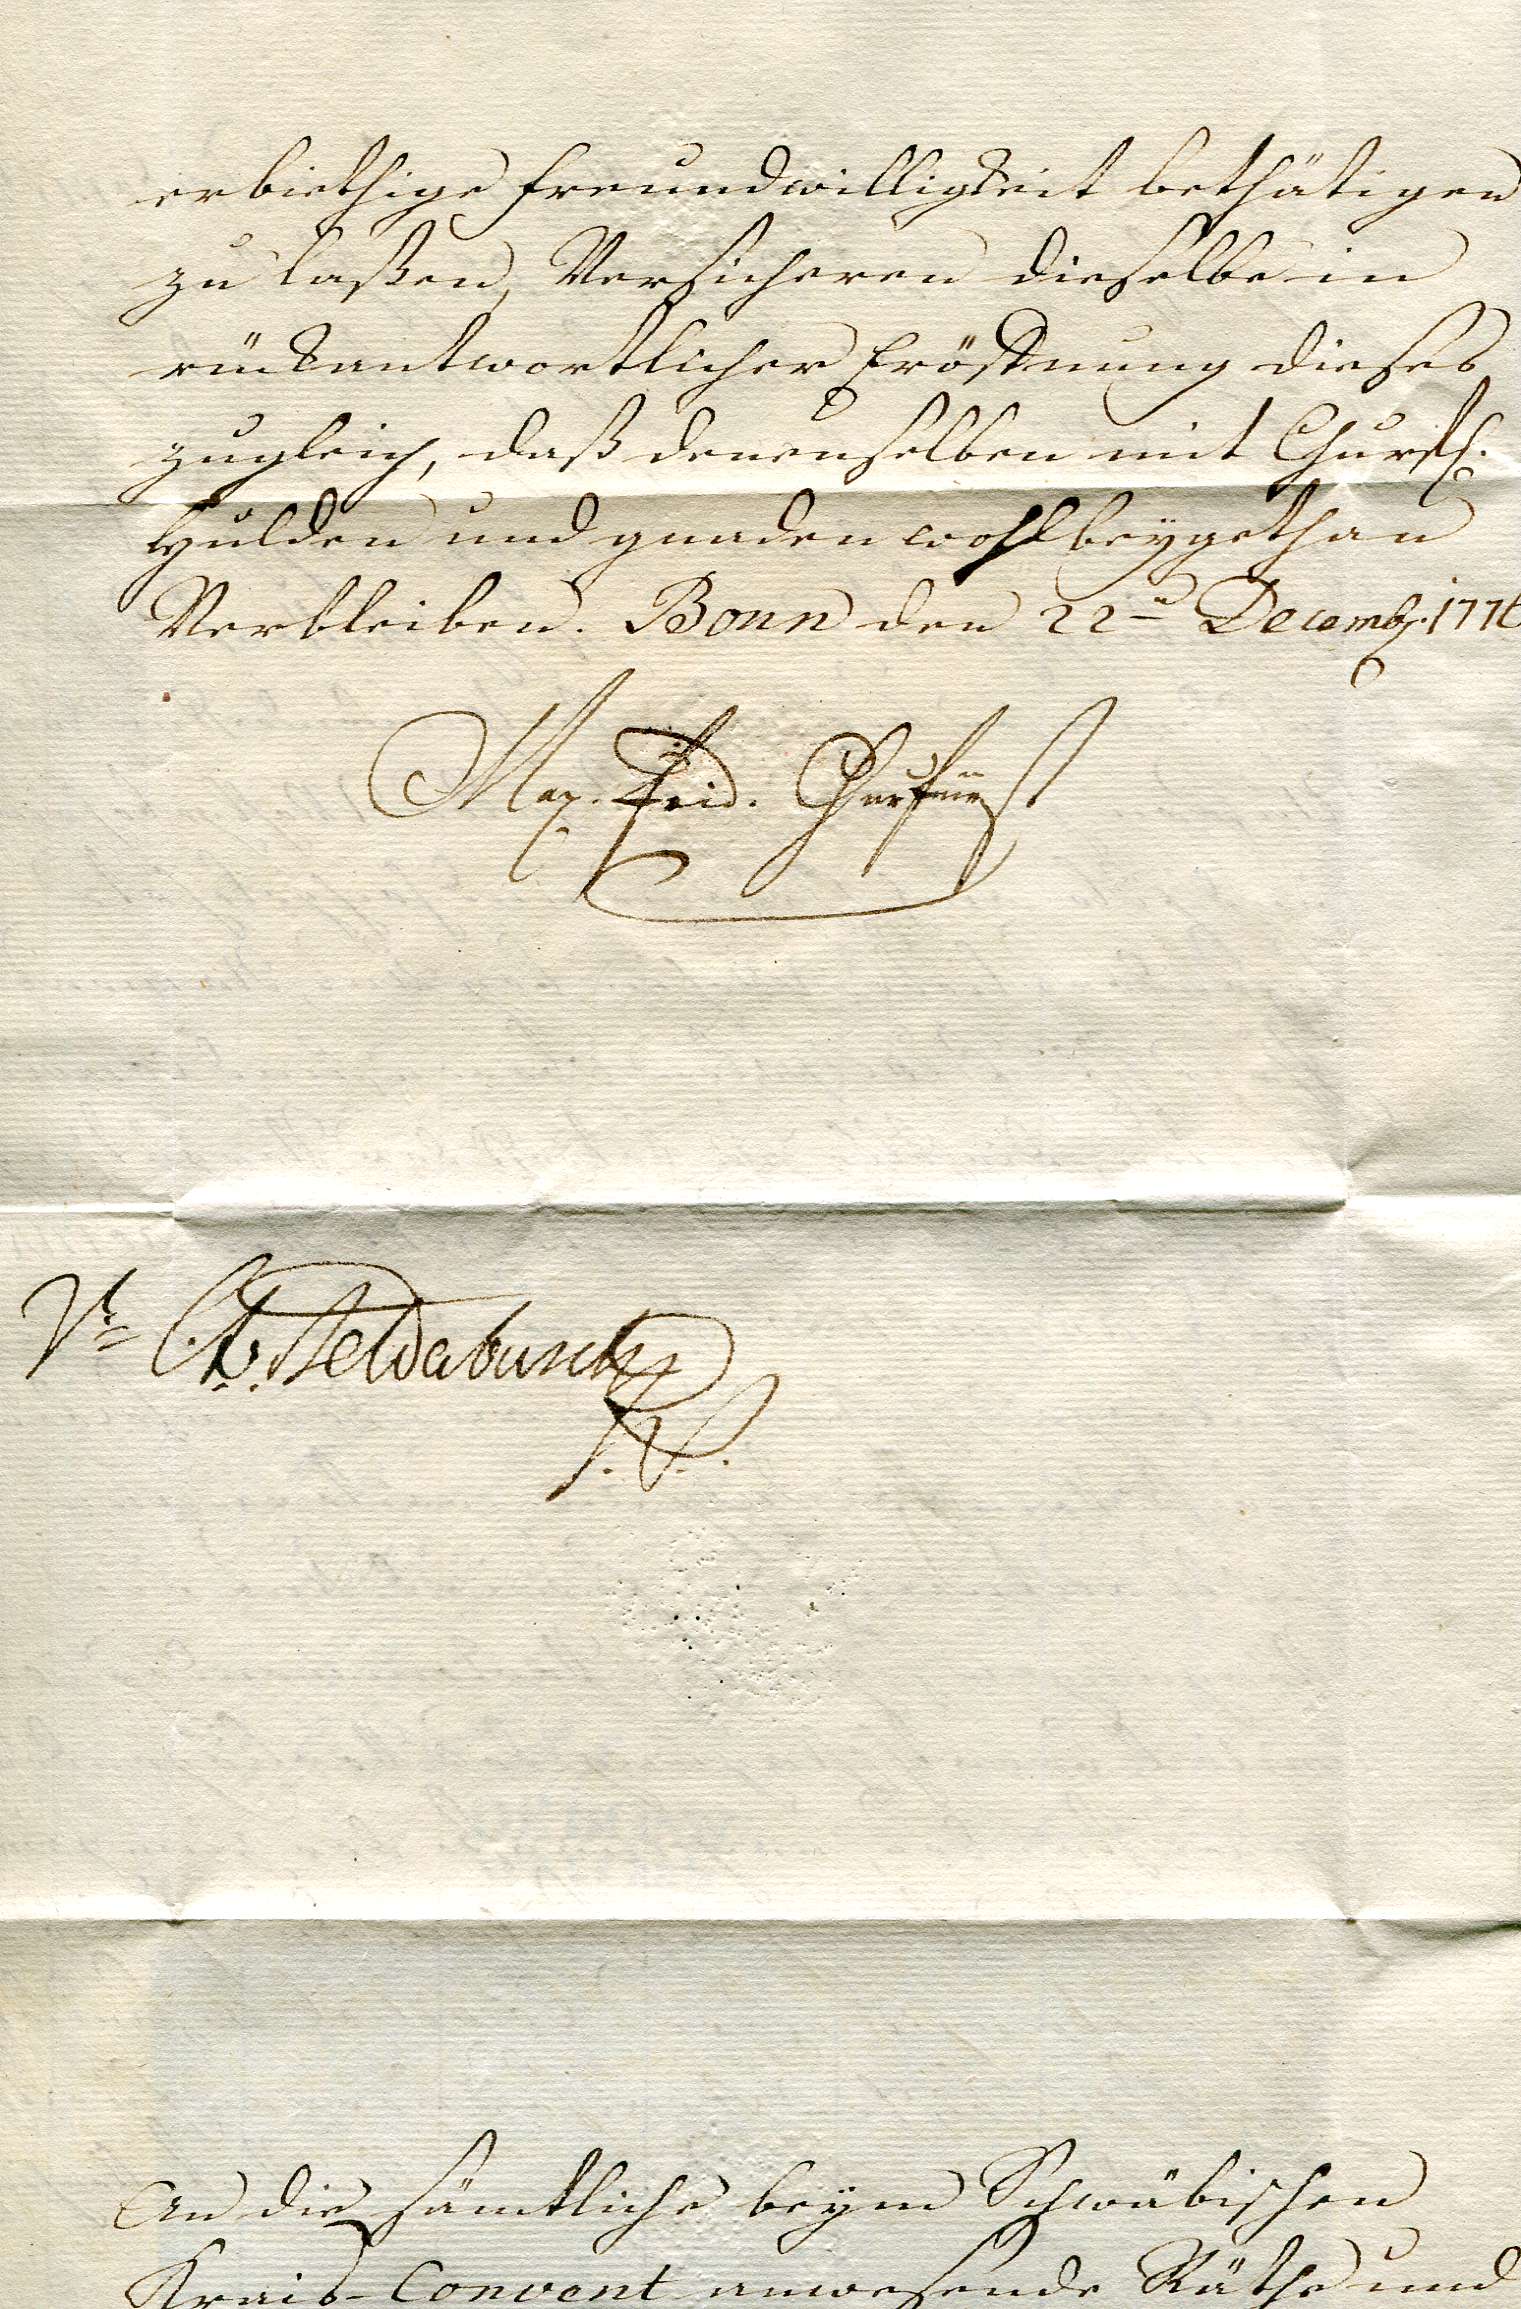 erbiethige freundwilligkeit bethätigen
zu laßen, Versicheren dieselbe in
rückantwortlicher Eröffnung dieses
zugleich, daß denenselben mit Churfl.
Hulden und gnaden wohlbeygethan
Verbleiben. Bonn den 22ten Decemb. 177
Max. Frid. Churfürst
Vt
An die sämtliche beym Schwäbischen
Krais-Convent anwesende Räthe und